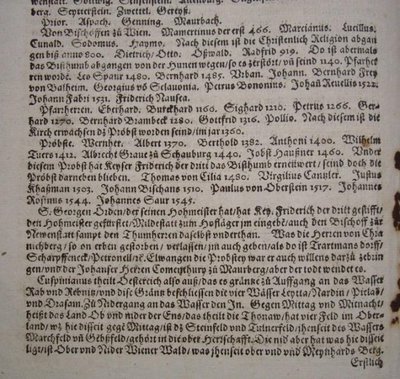 berg. Seyrersteten. Zwettl. Bereys.
Prior. Aspach. Genning. Maurbach.
Von Bischöffen zu Wien. Mamertinus der erst 466. Marcianus. Lucillus.
Cunald. Sodomus. Haymo. Nach diesem ist die Christenlich Religion abgan
gen biß anno 800. Dietrich. Otto. Oßwald. Radfrid 919. Do ist abermals
das Bisthumb abgangen von der Hunen wegen/ so es zerstört/ vñ seind 1140. Pfarher
ren worde. Leo Spaur 1480. Bernhard 1485. Urban. Johann. Bernhard Frey
von Valheim. Georgius vō Sclauonia. Petrus Bononius. Johañ Reuelis 1522.
Johann Fabri 1531. Friderich Nausea.
Pfarherren. Eberhard. Burckhard 1160. Sighard 1210. Petrus 1266. Ger-
hard 1270. Bernhard Brambeck 1280. Gotfrid 1316. Pollio. Nach diesem ist die
Kirch erwachsen zů Pröbst worden seind/ im jar 1360.
Pröbste. Wernher. Albert 1370. Berthold 1382. Anthoni 1400. Wilhelm
Tuers 1412. Albrecht Grave zů Schauburg 1440. Jobst Haußner 1460. Under
diesem Probst hat Keyser Friderich der drit das Bisthumb ernewert/ seind doch die
Pröbst darneben blieben. Thomas von Cilia 1480. Virgilius Cantzler. Justus
Khaßman 1503. Johann Bischans 1510. Paulus von Oberstein 1517. Johannes
Rosinus 1544. Johannes Saur 1545.
S. Georgen Orden/ der seinen Hohmeister hat/ hat Key. Friderich der drit gestifft/
den Hohmeister gefürstet/ Mildestatt zum Hoffläger jm eingebē/ auch den Bischoff zur
Newenstatt sampt den Thumherren daselbst underthan. Was die Herren von Chra
nichberg/ so on erben gestorben/ verlassen/ jm auch geben/ als do ist Trartmans dorff/
Scharpffeneck/ Petronell/ rc. Elwangen die Probstey war er auch willens darzů gebrin
gen/ und der Johaser Herren Comenthury zů Maurberg/ aber der todt wendet es.
Cuspinianus theilt Oesterreich also auß/ das es gräntze zů Auffgang an das Wasser
Rab und Rebnitz/ und diß Gräntz beschliessen die vier Wasser Leytta/ Nardin/ Pincka
und Drasam. Zů Nidergang an das Wasser den In. Gegen Mittag und Mitnacht/
heißt das Land Ob und nider der Ens/ das theilt die Thonaw/ hat vier Feld im Ober-
land/ wz hie disseit gegē Mittag/ ist dz Steinfeld und Tulnerfeld/ jhenseit des Wassers
Marchfeld vñ Gbützfeld/ gehört in die ober Herrschafft. Die nid aber hat was hie disseit
ligt/ ist Ober und Nider Wiener Wald/ was jhenseit ober und nid Meynhards Berg.
Erstlich